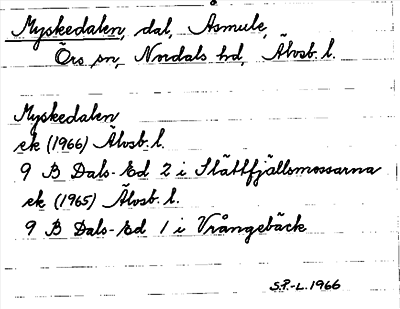 Myskedalen, dal, Asmule,
Örs sn, Nordals hd, Älvsb. l.
Myskedalen
ek (1966) Älvsb. l.
9 B Dals-Ed 2 i Slättfjällsmossarna
ek (1965) Älvsb. l.
9 B Dals-Ed 1 i Vrångebäck
S.P.-L. 1966